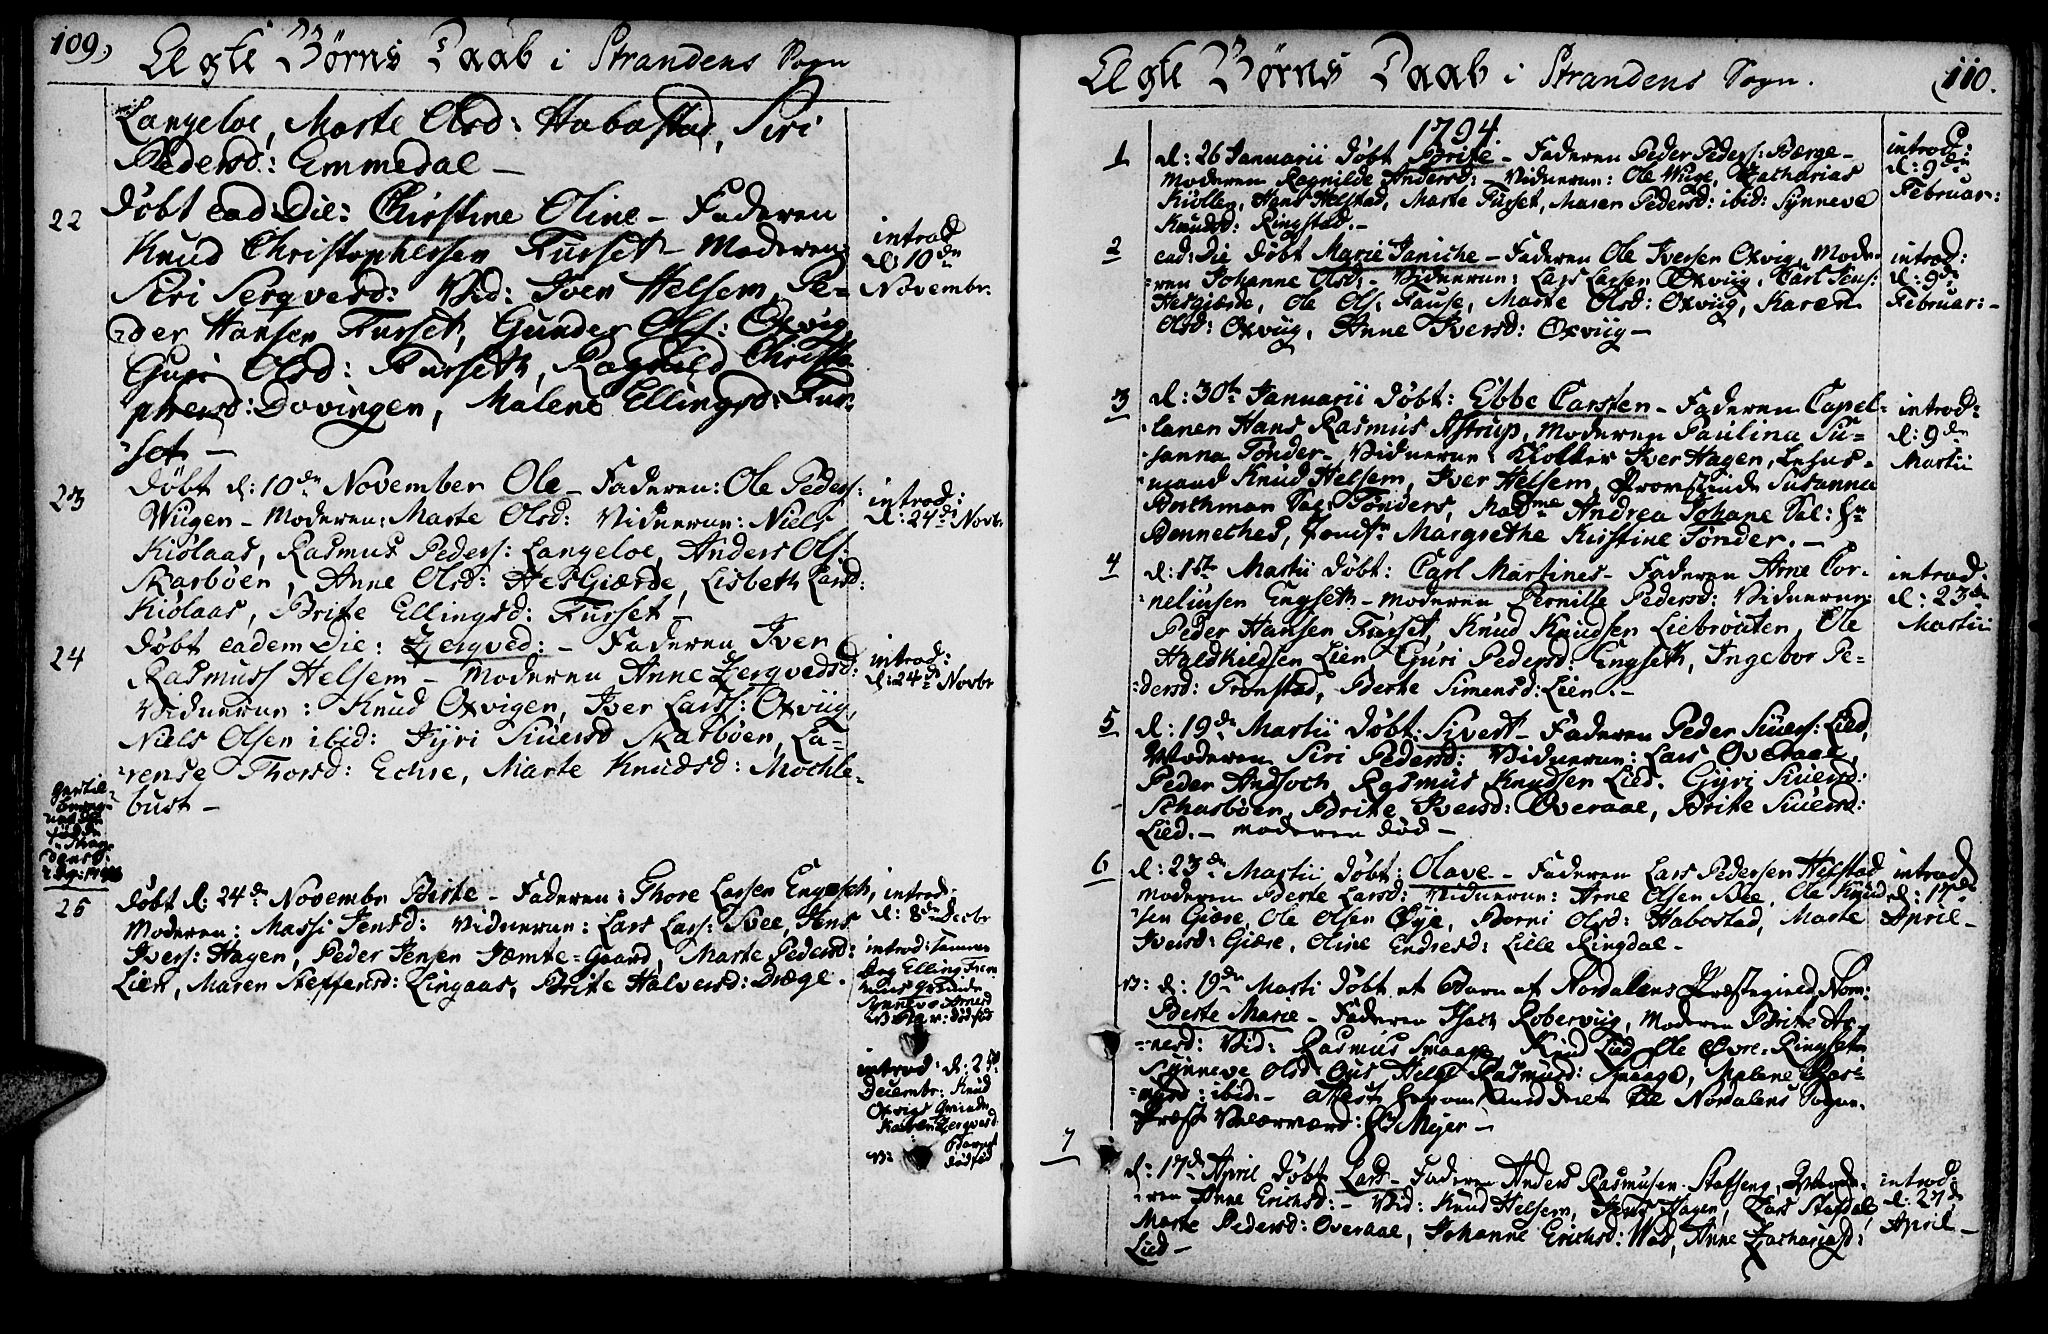 109.
Ægte Børns Daab i Strandens Sogn
Langeloe, Marte Olsd: Habostad, Siri
Pedersd: Emmedal –
22
Døbt ead: Die: Christine Oline – Faderen
Knud Christophersen Furseth – Moderen
Siri Sergversd: Vid: Iver Helsem, Pe-
der Hansen Furset, Gunder Ols: Oxvig,
Guri Olsd: Furseth, Ragnild Christo-
phersd: Dovingen, Malene Ellingsd: Fur-
set –
introd
d: 10de
Novembr:
23
Døbt d: 10de November Ole – Faderen: Ole Peders:
Wiigen – Moderen: Marte Olsd: Vidnerne: Niels
Kiølaas, Rasmus Peders: Langeloe, Anders Ols:
Skarbøen, Anne Olsd: Hesgiærde, Lisbeth Larsd:
Kiølaas, Brite Ellingsd: Furset –
introd:
d: 24de Novbr
24
Døbt eadem Die: Zergved: – Faderen Iver
Rasmuss Helsem – Moderen Anne Zergvedsd:
Vidnerne: Knud Oxvigen, Iver Larss: Oxviig,
Niels Olsen ibid: Jyri Siversd Skarbøen, La-
rense Thorsd: Echre, Marte Knudsd: Mochle-
bust –
introd:
d: 24de Novbr
25
Døbt d: 24de Novembr Berte – Faderen: Thore Larsen Engeseth,
Moderen: Massi Jensd: Vidnerne: Lars Lars: Svee, Jens
Ivers: Hagen, Peder Jensen Jemte-Gaard, Marte Pedersd:
Lien, Maren Steffensd: Lingaas, Brite Halversd: Dræge.
introd:
d: 8de Decbr
introd:
Elling
Synneve Arnesd
dødfød
introd: d: 25de
Decembr: Knud
Oxvigs Qvinde
Karen Zergversd
Barnet
dødfød
Ægte Børns Daab i Strandens Sogn.
110.
1794.
1
d: 26 Januarii Døbt Brite – Faderen Peder Peders: Berge –
Moderen Ragnilde Andersd: – Vidnerne: Ole Wiige, Zacharias
Kiøllen, Hans Helstad, Marte Furset, Maren Pedersd: ibid: Synneve
Knudsd: Ringstad. –
introd:
d: 9de
Februar:
2
ead: Die Døbt Marie Janiche – Faderen Ole Iversen Oxvig, Mode-
ren Johanne Olsd: – Vidnerne: Lars Larsen Oxviig, Carl Jens:
Hesgiærde, Ole Ols: Fause, Marte Olsd: Oxviig, Karen
Olsd: Oxviig, Anne Iversd: Oxviig –
introd:
d: 9de
Februar: –
3
d: 30te Januarii Døbt: Ebbe Carsten – Faderen Capel-
lanen Hans Rasmus Astrup, Moderen Paulina Su-
sanna Tønder – Vidnerne: Klokker Iver Hagen, Lehns-
mand Knud Helsem, Iver Helsem, Provstinde Susanna
Borthman Sal: Tønders, Madme Andrea Johane Sal: Hr
Bennethes, Jomfr Margrethe Kirstine Tønder. –
introd:
d: 9de
Martii
4
d: 1ste Martii Døbt: Carl Martines – Faderen Arne Cor-
neliusen Engseth – Moderen Pernille Pedersd: Vidnerne:
Peder Hansen Furset, Knud Knudsen Liebrouten, Ole
Haldkildsen Lien, Guri Pedersd: Engseth, Ingebor Pe-
dersd: Tronstad, Berte Simensd: Lien. –
introd:
d: 23de
Martii
5
d: 19de Martii Døbt: Sivert – Faderen Peder Sivers: Lied,
Moderen Siri Pedersd: Vidnerne: Lars Overaae,
Peder Andsoch, Rasmus Knudsen Lied. Gyri Siversd:
Scharbøen, Brite Iversd: Overaae, Brite Siversd:
Lied. – Moderen død –
6
d: 23de Martii Døbt: Olave – Faderen Lars Pedersen Helstad
Moderen Berte Larsd: Vidnerne: Arne Olsen Bee, Ole Knud-
sen Giære, Ole Olsen Øye, Borni Olsd: Habostad, Marte
Iversd: Giære, Oline Endresd: Lille Ringdal –
introd
d: 17de
April –
B: d: 19de Marti Døbt et Barn af Nordalens Præstegield, Nom:
Berte Marie – Faderen Isach Robervig, Moderen Brite Ar-
nesd: Vid: Rasmus Smaage, Knud Lied, Ole Øvre-Ringset,
Synneve Olsd Ous, Helge Rasmusd: Smaage, Malene Ras-
musd: ibid – Attest herom sendt til Nordalens Sogne-
Præst Velærværd: Hr Mejer –
7
d: 17de April Døbt Lars – Faderen Anders Rasmusen Stafseng, Mode-
ren Anne Erichsd: – Vid: Knud Helsem, Jens Hagen, Lars Stafdal
Marte Pedersd: Overaae, Johanne Erichsd: Wad, Anne Zachariasd:
Lied –
introd:
d: 27de
April –